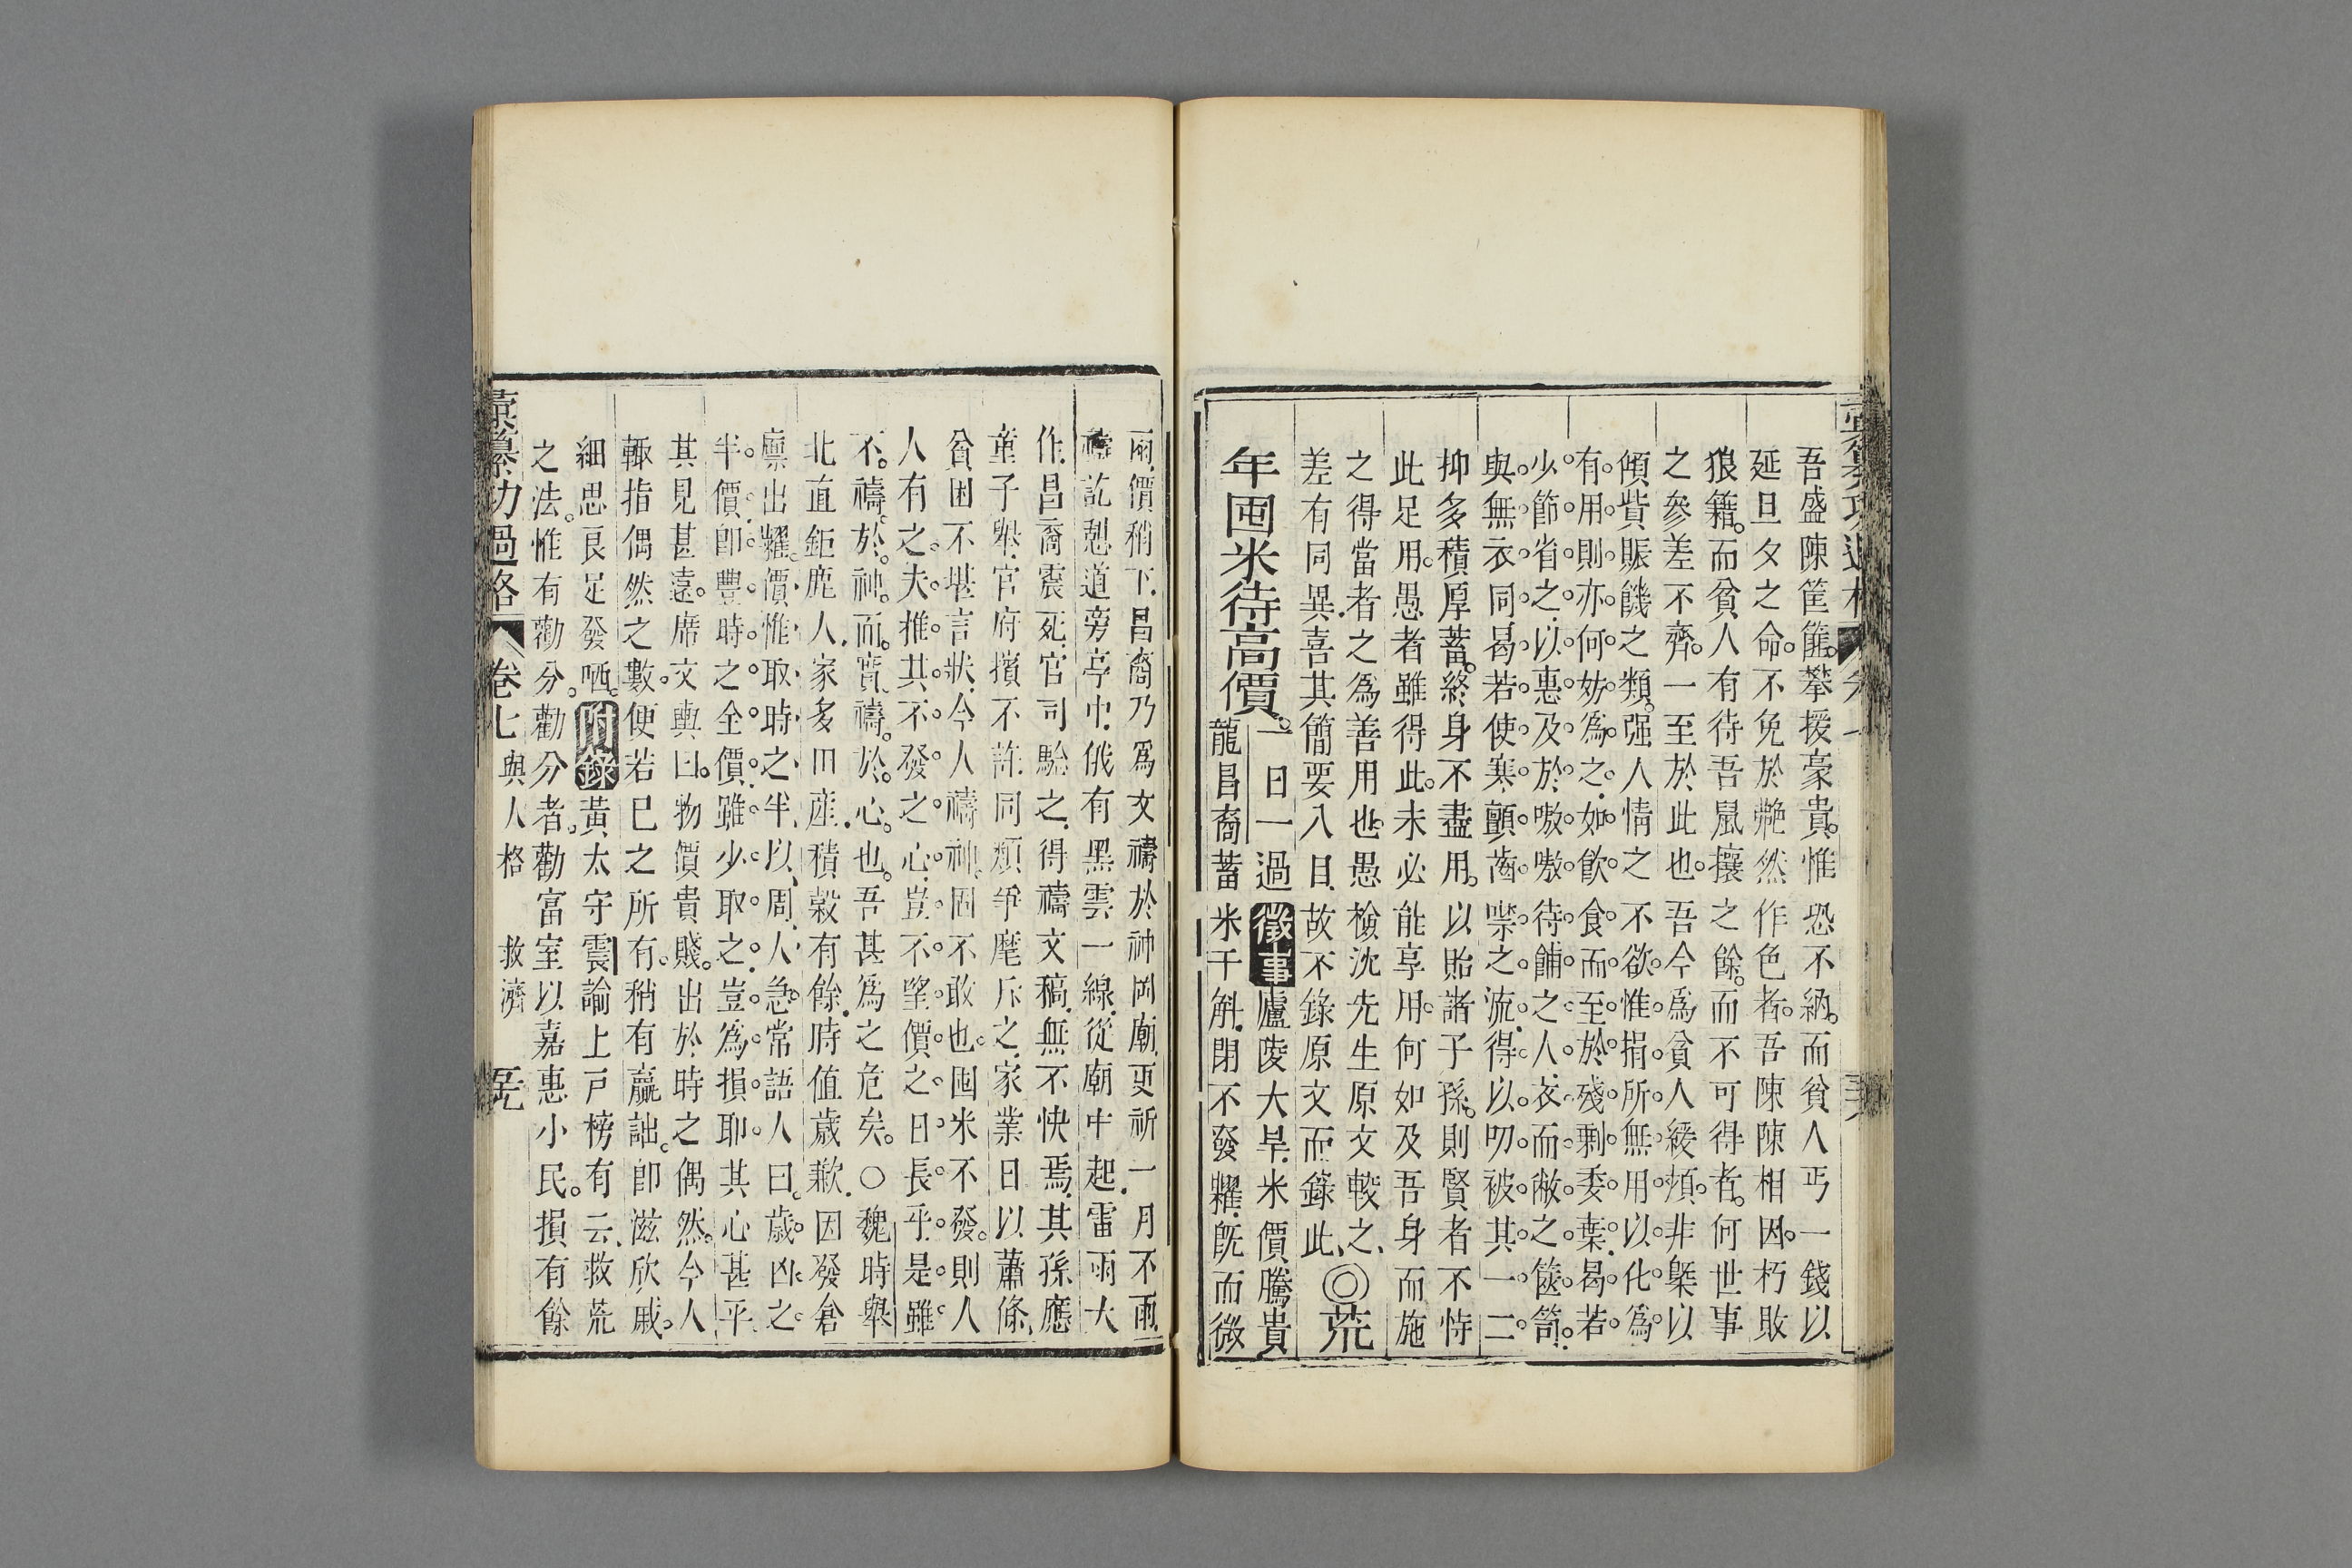 吾盛陳筐篚。攀援豪貴。惟恐不納。而貧人丐一錢以
延旦夕之命。不免於艴然作色者。吾陳陳相因。朽敗
狼籍。而貧人有待吾鼠攘之餘。而不可得者。何世事
之參差不齊。一至於此也。吾今爲貧人緩頰。非槩以
傾貲賑饑之類。强人情之不欲。惟捐所無用以化爲
有用。則亦何妨爲之。如飲食而至於殘剩委棄。曷若
少節省之。以惠及於嗷嗷待餔之人。衣而敝之篋笥。
與無衣同。曷若使寒顫齒噤之流。得以叨被其一二
抑多積厚蓄。終身不盡用。以貽諸子孫。則賢者不恃
此足用。愚者雖得此。未必能享用。何如及吾身而施
之得當者之爲善用也。愚檢沈先生原文較之、◎荒
差有同異。喜其簡要八目。故不錄原文而錄此、
年囤米待高價。一日一過 徵事 廬陵大旱。米價騰貴
龍昌裔蓄米千斛。閉不發糶。旣而微
雨。價稍下。昌裔乃爲文禱於神岡廟。更祈一月不雨。
禱訖憇道旁亭中。俄有黑雲一線。從廟中起。雷雨大
作。昌裔震死。官司驗之。得禱文稿。無不快焉。其孫應
童子舉。官府擯不許。同類爭麾斥之。家業日以蕭條。
貧困不堪言狀。今人禱神。固不敢也。囤米不發。則人
人有之。夫推其不發之心。豈不望價之日長乎。是雖
不。禱。於。神。而。實。禱。於。心。也。吾甚爲之危矣。○魏時舉
北直鉅鹿人。家多田產。積穀有餘。時值歲歉。因發倉
廪出糶。價惟取時之半。以周人急。常語人曰。歲凶之
半價。卽豐時之全價。雖少取之。豈爲損耶。其心甚平
其見甚遠。席文輿曰。物價貴賤。出於時之偶然。今人
輙指偶然之數。便若已之所有。稍有贏詘。卽滋欣戚。
細思良足發哂。附錄 黃太守震諭上戸榜有云。救荒
之法。惟有勸分。勸分者。勸富室以嘉惠小民。損有餘
彙纂功過格 卷七 與人格 救濟